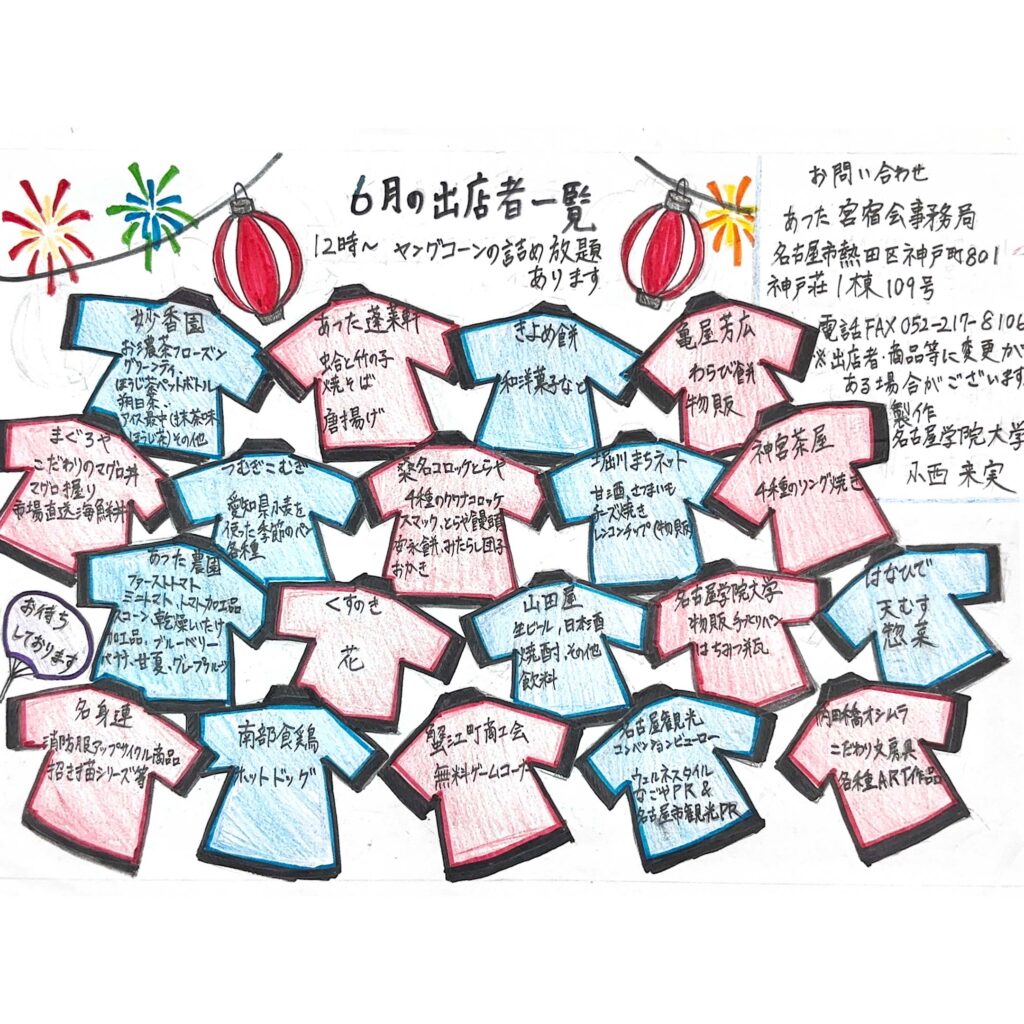 6月の出店者一覧
12時～ ヤングコーンの詰め放題
あります
お問い合わせ
あった宮宿会事務局
名古屋市熱田区神戸町801
神戸荘1棟109号
電話FAX 052-217-8106
※出店者・商品等に変更が
ある場合がございます
製作
名古屋学院大学
小西 来実
妙香園
お濃茶フローズン
グリーンティ
ほうじ茶ペットボトル
朔日茶
アイス最中(抹茶味
ほうじ茶)その他
あった蓬莱軒
蛤と竹の子
焼そば
唐揚げ
きよめ餅
和洋菓子など
亀屋芳広
わらび餅
物販
まぐろや
こだわりのマグロ丼
マグロ握り
市場直送海鮮丼
つむぎこむぎ
愛知県小麦を
使った季節のパン
各種
桑名コロッケとらや
4種のクワナコロッケ
スマック、とらや饅頭
安永餅、みたらし団子
おかき
堀川まちネット
甘酒、さつまいも
チーズ焼き
レンコンチップ(物販)
神宮茶屋
4種のリング焼き
あった農園
ファーストトマト
ミニトマト、トマト加工品
スコーン、乾燥しいたけ
加工品、ブルーベリー
バナナ、甘夏、グレープフルーツ
くすのき
花
山田屋
生ビール、日本酒
焼酎、その他
飲料
名古屋学院大学
物販 手作りパン
はちみつ
はなひで
天むす
惣菜
お待ち
しております
名身連
消防服アップサイクル商品
招き猫シリーズ等
南部食鶏
ホットドッグ
蟹江町商工会
無料ゲームコーナー
名古屋観光
コンベンションビューロー
ウェルネスタイル
なごやPR&
名古屋市観光PR
内田橋オシムラ
こだわり文房具
各種ART作品